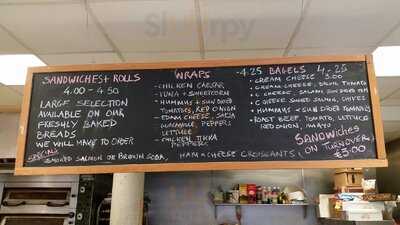 SANDWICHES + ROLLS
4.00 - 4.50
LARGE SELECTION
AVAILABLE ON OUR
FRESHLY BAKED
BREADS
WE WILL MAKE TO ORDER
SPECIALS
SMOKED SALMON ON BROWN SODA, HAM & CHEESE CROISSANTS,
WRAPS - 4.25
- CHICKEN CAESAR
- TUNA + SWEETCORN
- HUMMUS + SUN DRIED
TOMATOES, RED ONION
- EDAM CHEESE, SALSA
GUACAMOLE, PEPPERS
LETTUCE
- CHICKEN TIKKA
PEPPERS
BAGELS 4.25
- CREAM CHEESE 3.00
- CREAM CHEESE, TOMATO
- C CHEESE, SALAMI, SUN DRIED TOM
- C CHEESE, SMOKED SALMON, CHIVES
- HUMMUS + SUN DRIED TOMATO
- ROAST BEEF, TOMATO, LETTUCE
RED ONION, MAYO
SANDWICHES
ON TURNOVER
€5.00